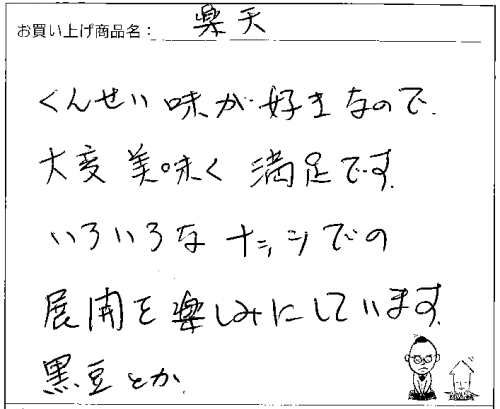 お買い上げ商品名: 楽天
くんせい味が好きなので.
大変美味く満足です.
いろいろなナッツでの
展開を楽しみにしています.
黒豆とか.